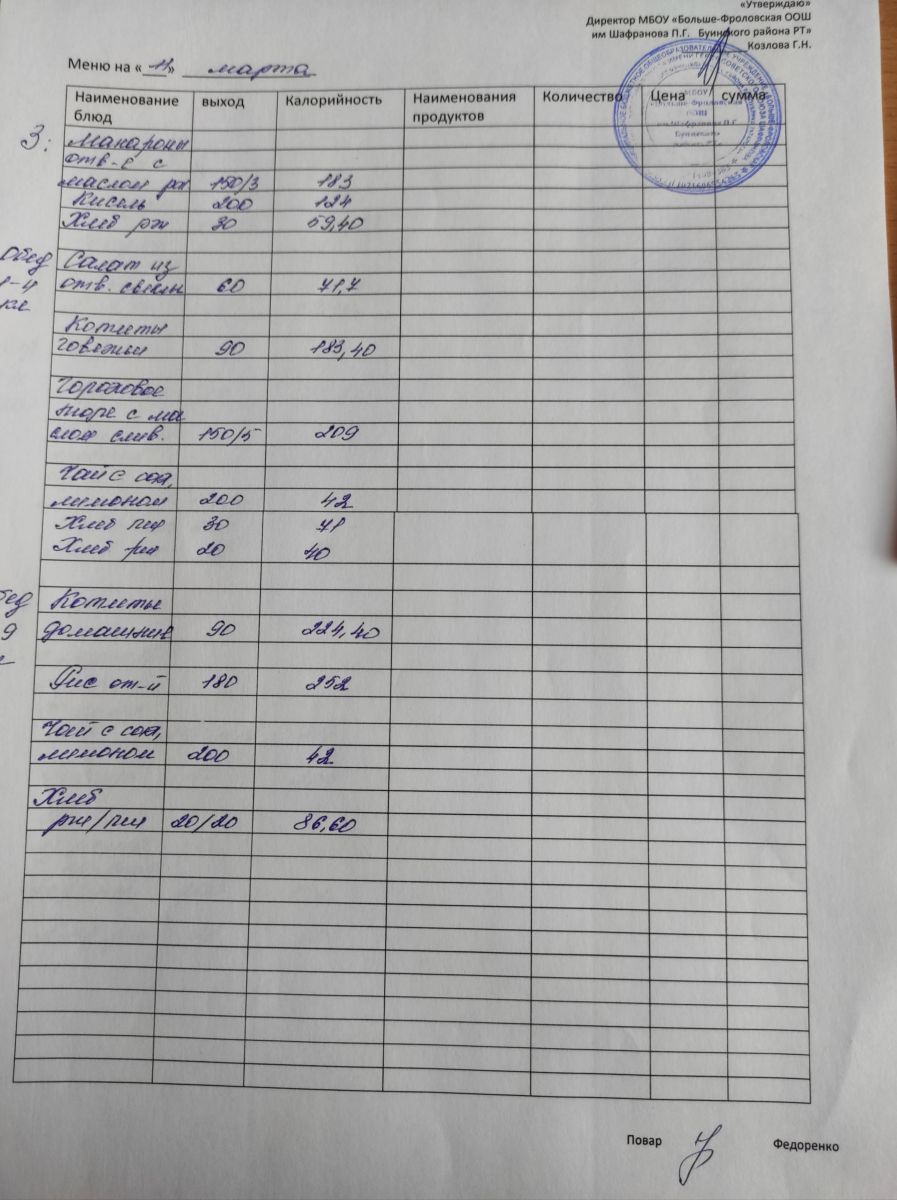 «Утверждаю»
Директор МБОУ «Больше-Фроловская ООШ
им Шафранова П.Г. Буинского района РТ»
Козлова Г.Н.
Меню на «11» марта
Наименование блюд выход Калорийность Наименования продуктов Количество Цена сумма
З: Макароны
отв-е с
маслом 150/3 183
Кисель 200 124
Хлеб рж 30 59,40
Обед Салат из
1-4 отв. свеклы 60 71,7
кл
Котлеты
говяжьи 90 183,40
Гороховое
пюре с ма
слом слив. 150/5 209
Чай с сах,
лимоном 200 42
Хлеб пш 30 71
Хлеб рж 20 40
бед Котлеты
9 домашние 90 224,40
Рис от-й 180 252
Чай с сах,
лимоном 200 42
Хлеб
рж/пш 20/20 86,60
Повар Федоренко